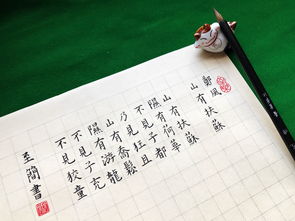 鄭風
山有扶蘇
山有扶蘇
隰有荷華
不見子都
乃見狂且
山有喬松
隰有游龍
不見子充
乃見狡童
至簡書